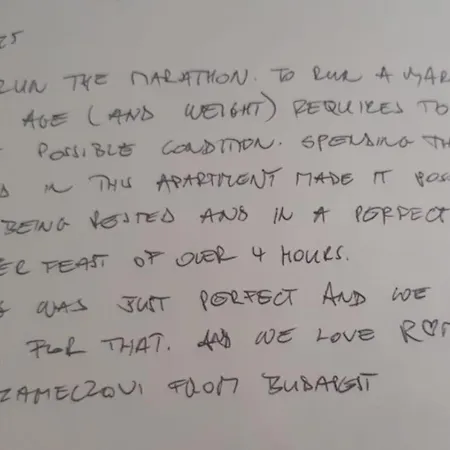 25
RUN THE MARATHON. TO RUN A MAR
AGE (AND WEIGHT) REQUIRES TO
POSSIBLE CONDITION. SPENDING TH
IN THIS APARTMENT MADE IT POS
BEING RESTED AND IN A PERFECT
ER FEAST OF OVER 4 HOURS.
WAS JUST PERFECT AND WE
FOR THAT. AND WE LOVE R♡M
FROM BUDAPEST